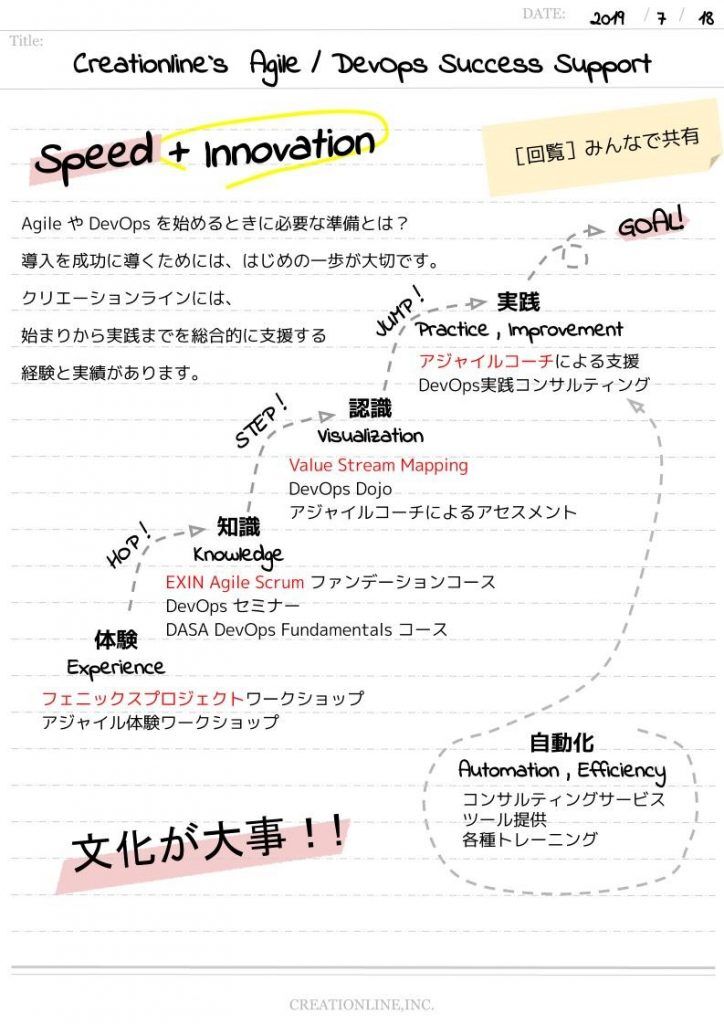 DATE: 2019 / 7 / 18
Title:
Creationline`s Agile / DevOps Success Support
Speed + Innovation
［回覧］みんなで共有
Agile や DevOps を始めるときに必要な準備とは？
導入を成功に導くためには、はじめの一歩が大切です。
クリエーションラインには、
始まりから実践までを総合的に支援する
経験と実績があります。
GOAL!
JUMP!
実践
Practice , Improvement
アジャイルコーチによる支援
DevOps実践コンサルティング
STEP!
認識
Visualization
Value Stream Mapping
DevOps Dojo
アジャイルコーチによるアセスメント
HOP!
知識
Knowledge
EXIN Agile Scrum ファンデーションコース
DevOps セミナー
DASA DevOps Fundamentals コース
体験
Experience
フェニックスプロジェクトワークショップ
アジャイル体験ワークショップ
自動化
Automation , Efficiency
コンサルティングサービス
ツール提供
各種トレーニング
文化が大事！！
CREATIONLINE,INC.